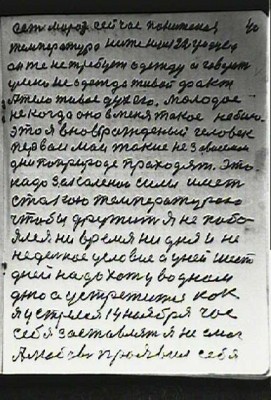 40
сет мороз сейчас понижена
температура ниже нуля 22 градуса
он же не требует одежду а говорит
учени не одежда живой факт
а тело живое дух его. Молодое
некогда оно в меня такое небыло
это я вновь рожденый человек
первой мои такие не зависимо
дни по природе проходят. Это
надо закаленое силы имет
с такою температурою
чтобы дружит я не побо
ялся ни время ни дня и не
недельное условие а у ней шест
дней надо хоту в одном
дню а устретится как
я устрел 14 ноября час
себя заставлят я не смог
А мой час проявил себя